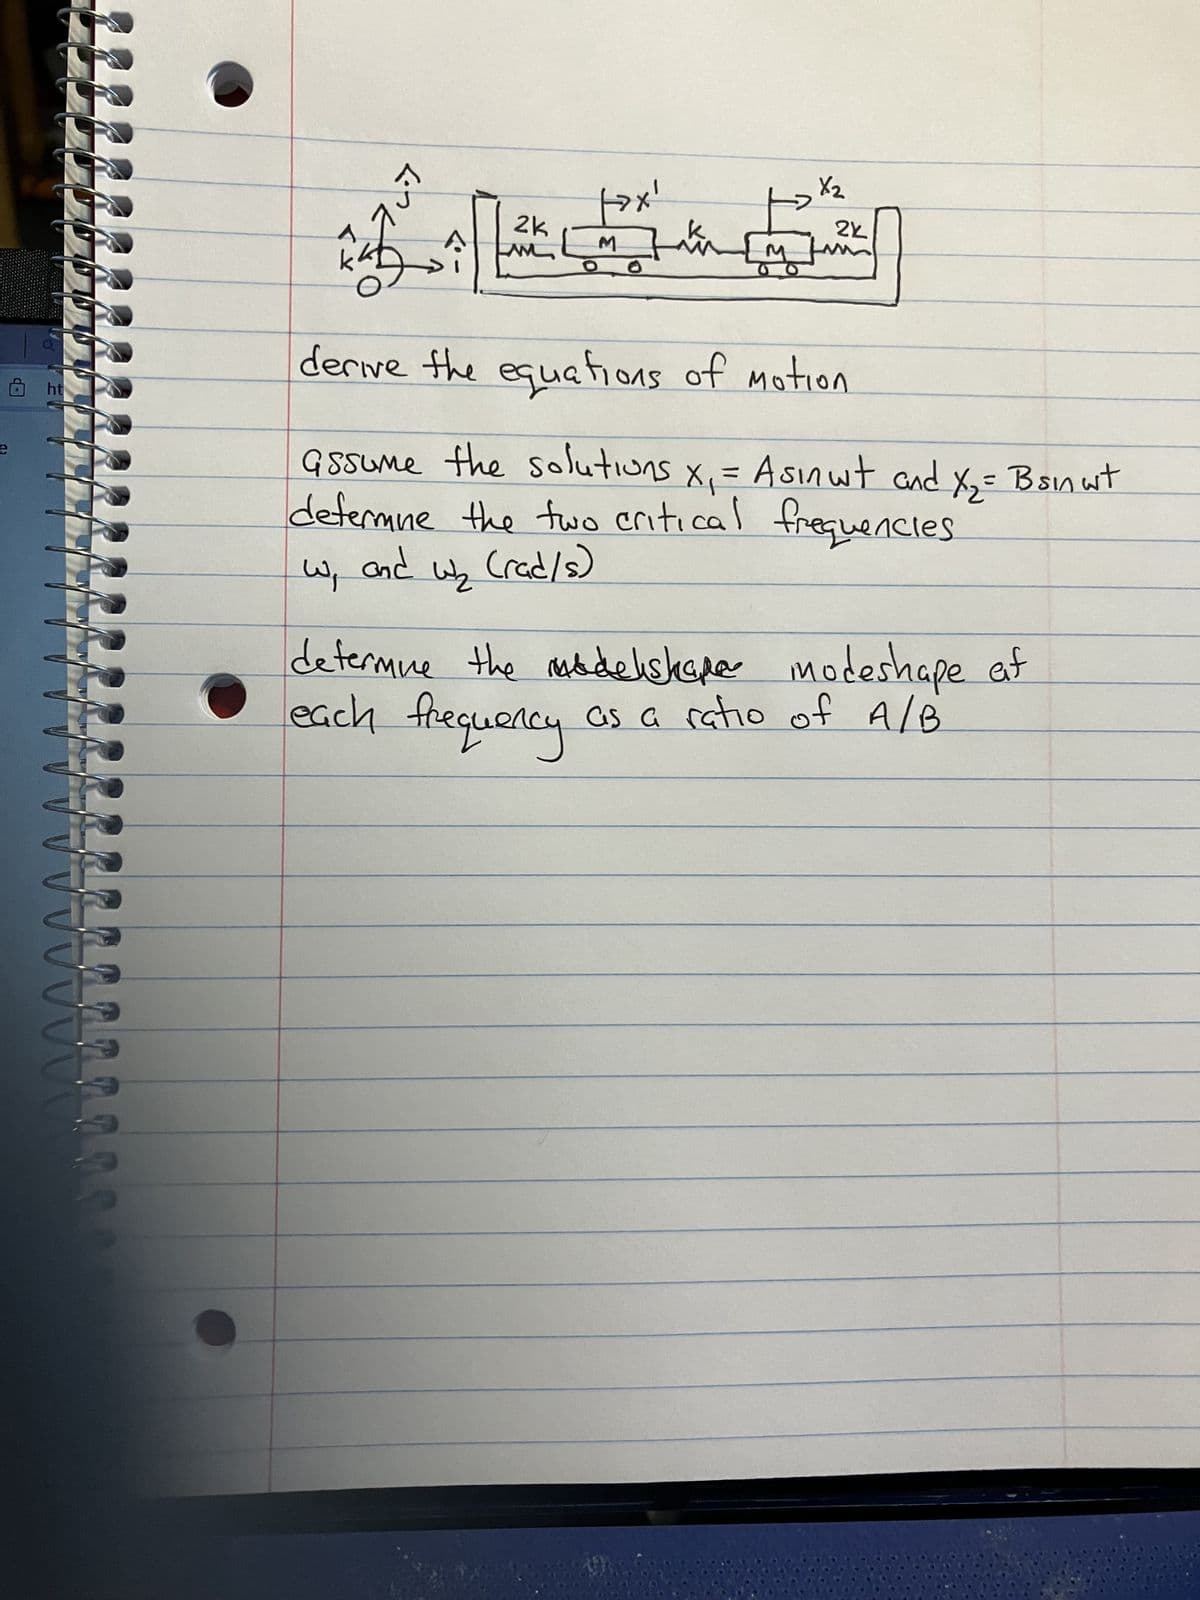 ĵ
k̂
î
O
2k
M
x'
k
M
X2
2k
derive the equations of motion
assume the solutions x₁ = A sinwt and x₂ = B sinwt
determine the two critical frequencies
w₁ and w₂ (rad/s)
determine the modeshape at
each frequency as a ratio of A/B
ht